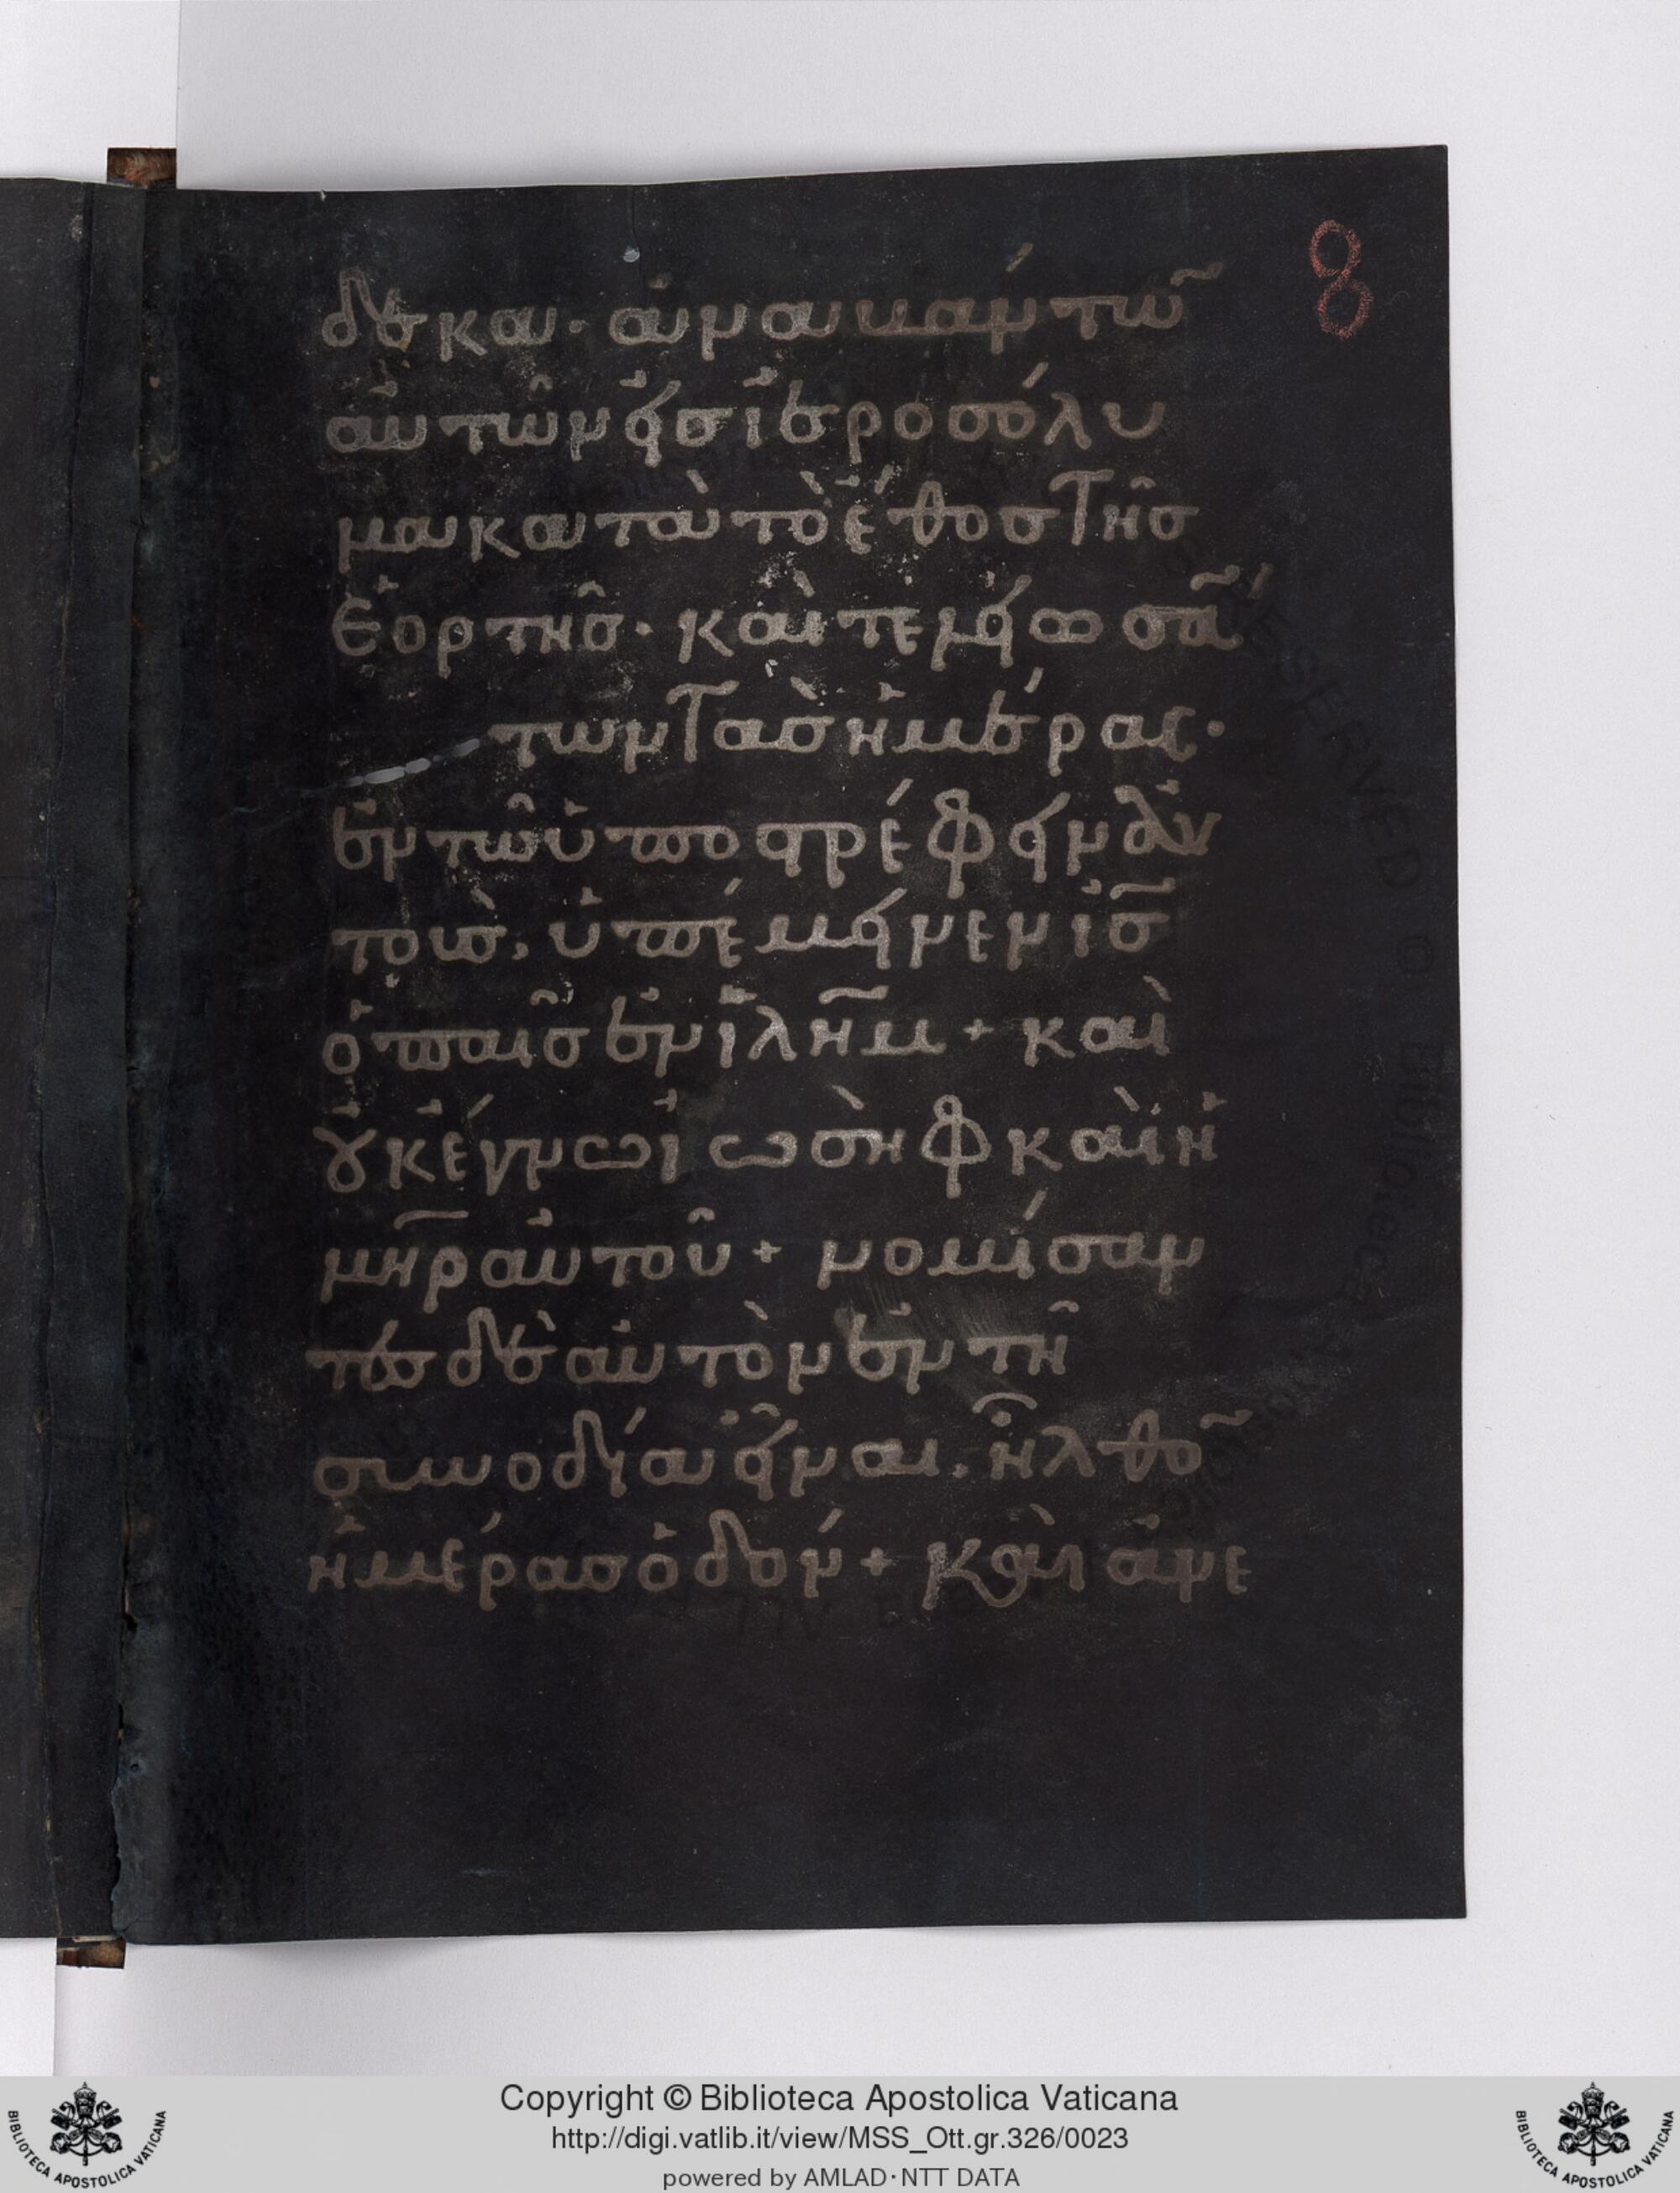 8
δεκα· ἀναβάντω̃
αὐτῶν εἰσ ἱεροσόλυ
μα κατὰ τὸ ἔθοσ τῆσ
ἑορτῆσ· καὶ τελειωσά̃
των τὰσ ἡμέρας·
ἐν τῷ ὑποστρέφειν αὐ
τοὺσ, ὑπέμεινεν ἰσ̃
ὁ παῖσ ἐν ἰλη̃μ + καὶ
οὐκ ἔγνω ἰωσὴφ καὶ ἡ
μη̅ρ αὐτοῦ + νομίσαν
τεσ δὲ αὐτὸν ἐν τῆ
συνοδία εἶναι, ἦλθο̃
ἡμέρασ ὁδόν + καὶ ἀνε
Copyright © Biblioteca Apostolica Vaticana
http://digi.vatlib.it/view/MSS_Ott.gr.326/0023
powered by AMLAD·NTT DATA
BIBLIOTECA APOSTOLICA VATICANA
BIBLIOTECA APOSTOLICA VATICANA